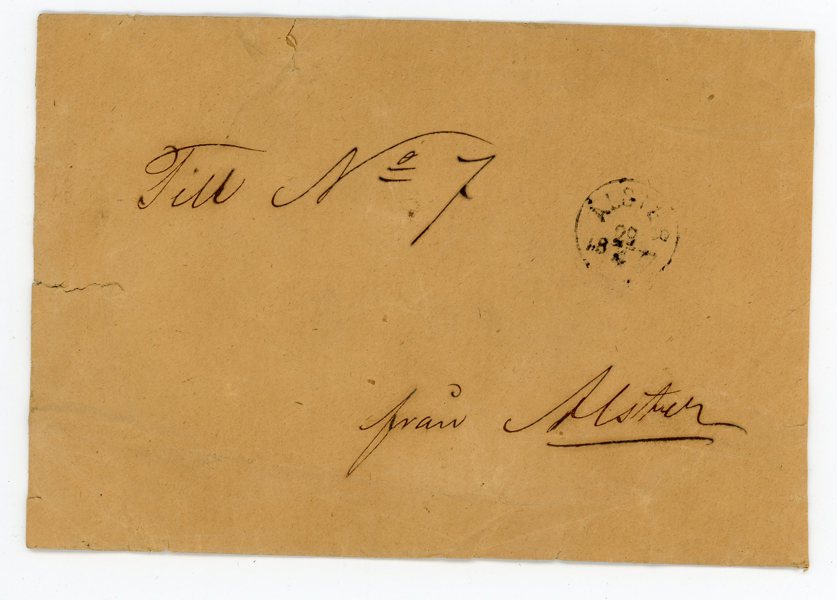 Till Nº 7
ALSTER
29
från Alster